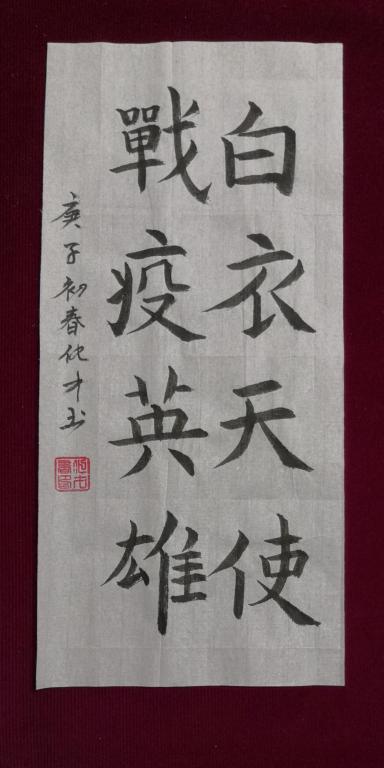 白衣天使
戰疫英雄
庚子初春佗才书